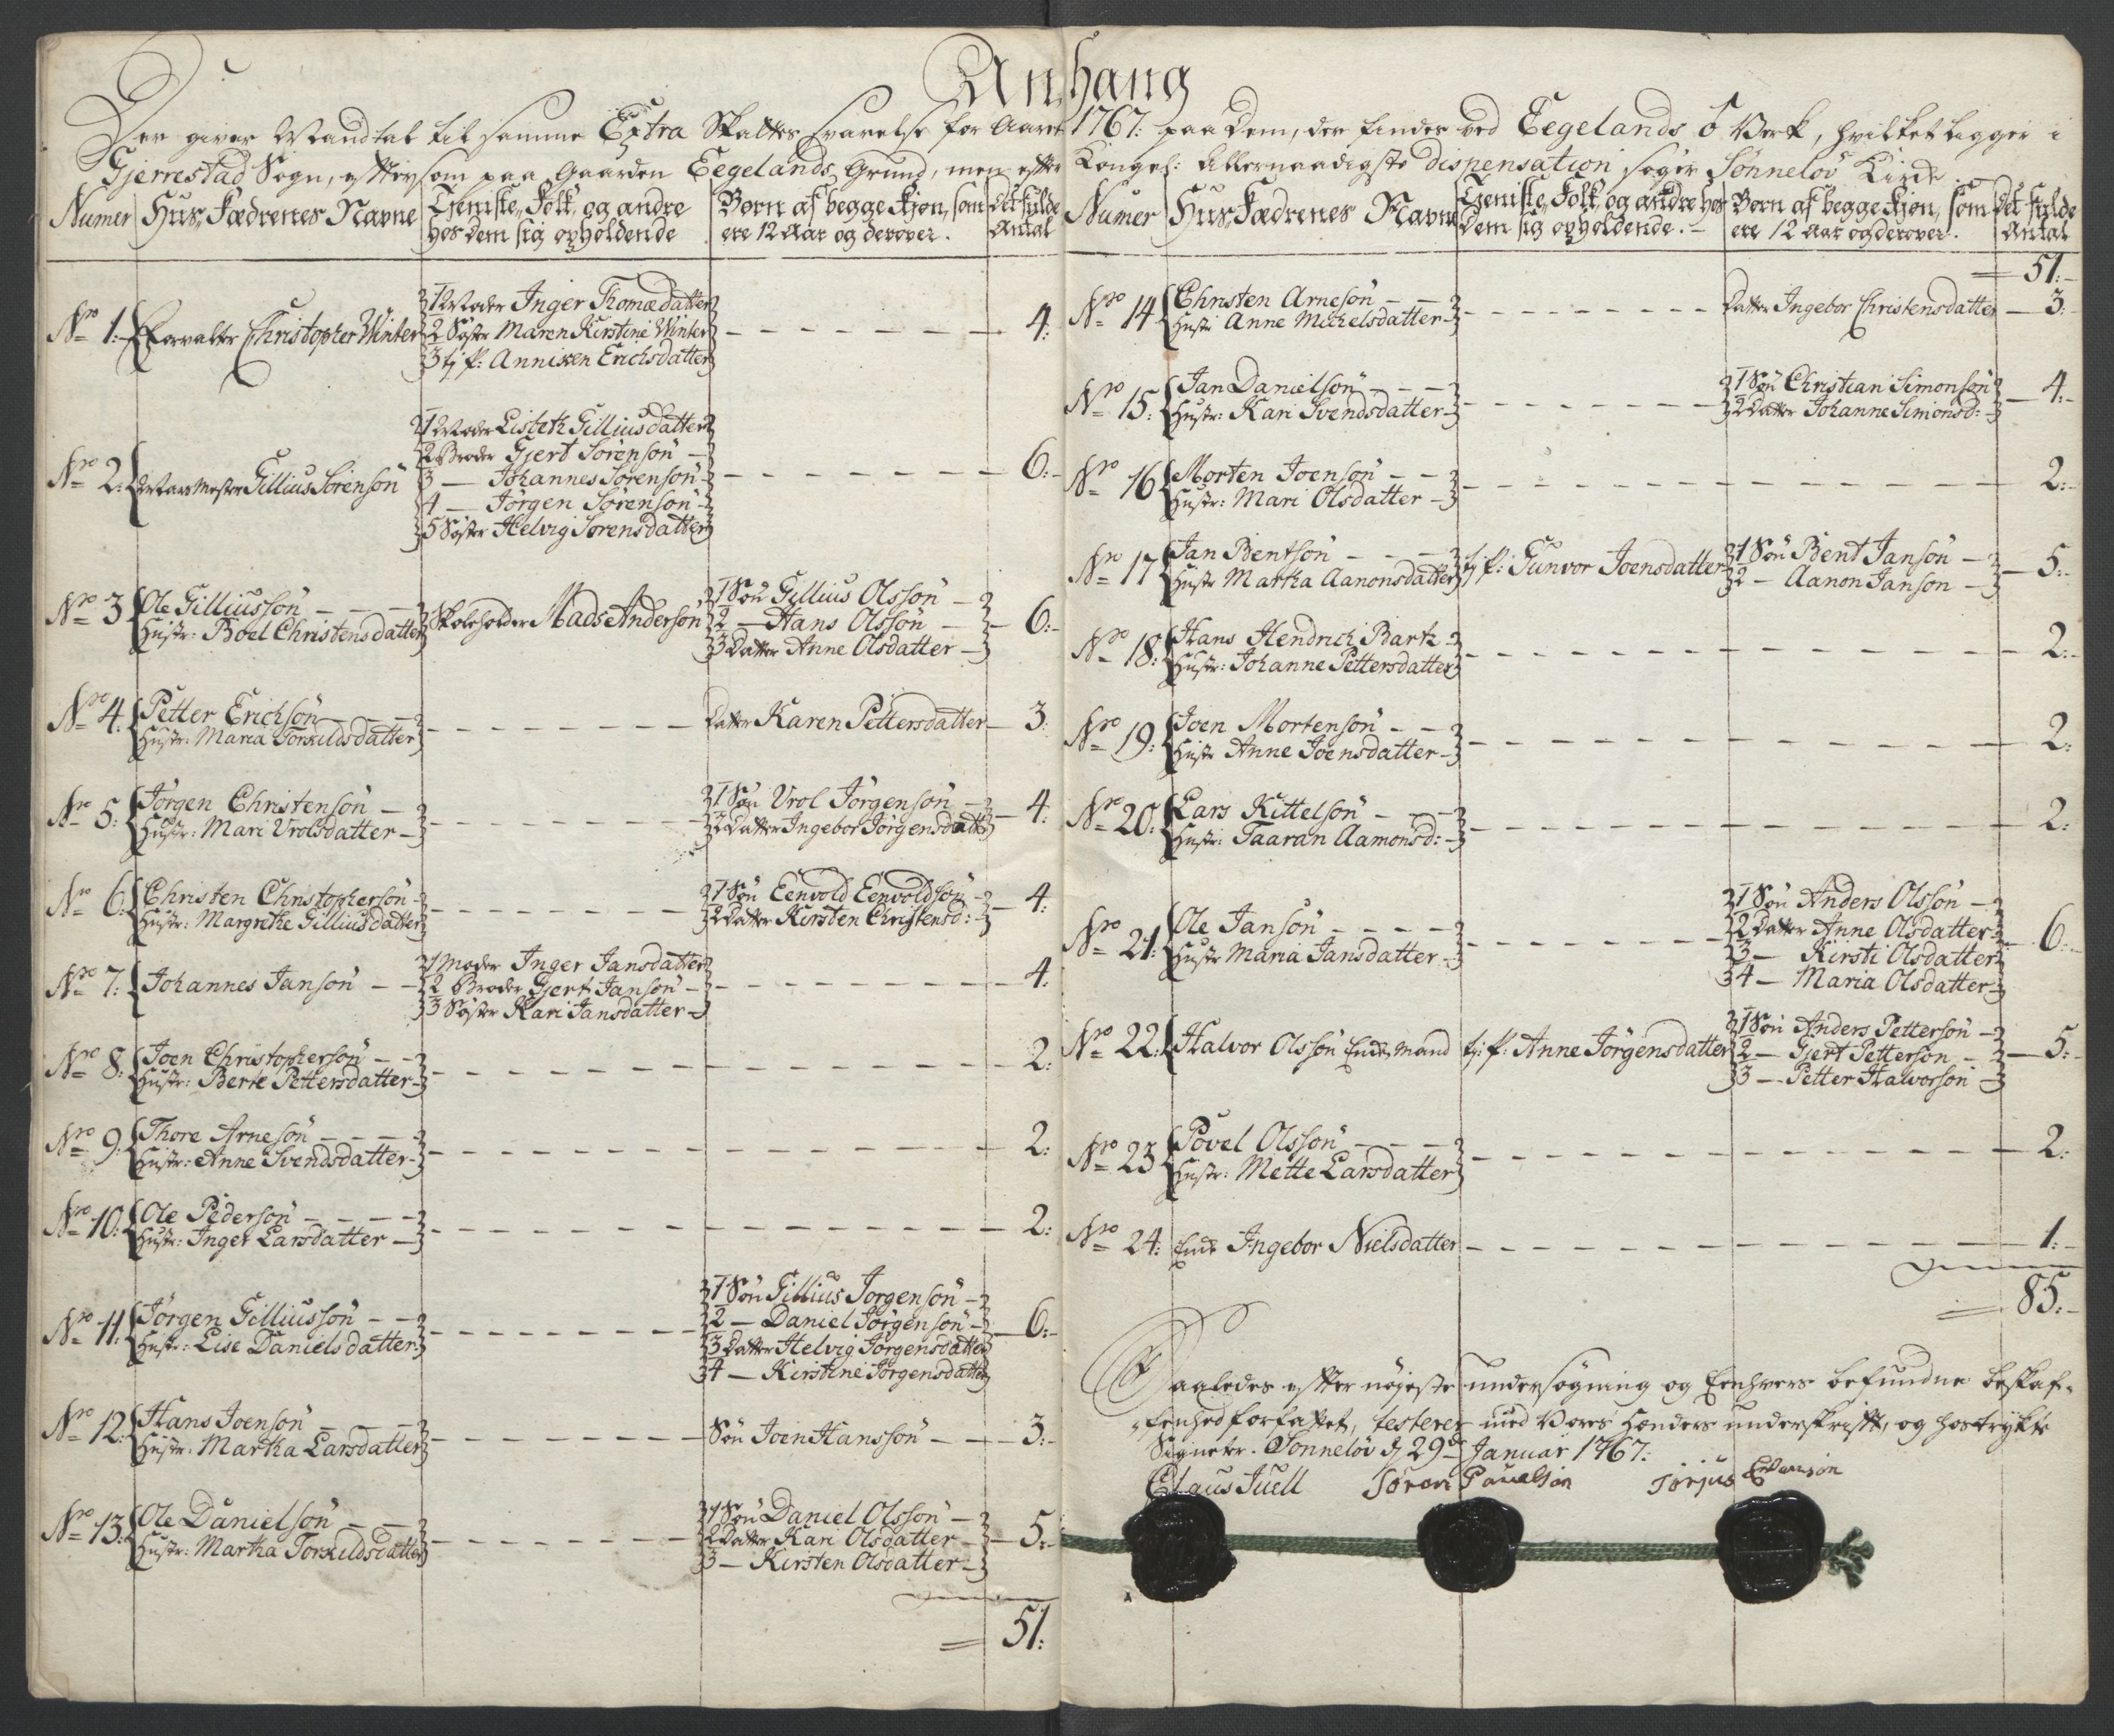 Anhang
Der giver Mandtal til samme Extra Skattes svarelse for Aaret 1767: paa Dem, der findes ved Eegelands Verk, hvilket ligger i
Gjerrestad Sogn, eftersom paa Gaarden Eegelands Grund, men efter Kongel: Allernaadigste Dispensation søger Sønneløv Kirke.
Numer Hus-Fædrenes Navne Tieniste-Folk, og andre hos dem sig opholdende Børn af begge Kjøn, som ere 12 Aar og derover. Det fulde Antal
No 1: Forvalter Christopher Winter
1 Moder Inger Thomædatter
2 Søster Maren Kirstine Winter
3 tj. p: Anniken Erichsdatter
4:
No 2: Mester Gillius Sörensön
1 Moder Lisbeth Gilliusdatter
2 Broder Gjert Sörensön
3 — Johannes Sörensön
4 — Jörgen Sörensön
5 Søster Helvig Sörensdatter
6:
No 3 Ole Gilliussön
Hustr: Boel Christensdatter
Skoleholder Mads Andersön
1 Søn Gillius Olssön
2 — Hans Olssön
3 Datter Anne Olsdatter
6:
No 4. Petter Erichsön
Hustr: Maria Torkildsdatter
Datter Karen Pettersdatter
3:
No 5: Jörgen Christensön
Hustr: Mari Vrolsdatter
1 Søn Vrol Jörgensön
2 Datter Ingebor Jörgensdatter
4:
No 6: Christen Christophersön
Hustr: Margrethe Gilliusdatter
1 Søn Eenvold Eenvoldsön
2 Datter Kirsten Christensd:
4:
No 7: Johannes Jansön
1 Moder Inger Jansdatter
2 Broder Gjert Jansön
3 Søster Kari Jansdatter
4:
No 8: Joen Christophersön
Hustr: Berte Pettersdatter
2:
No 9: Thore Arnesön
Hustr: Anne Svendsdatter
2:
No 10: Ole Pedersön
Hustr: Inger Larsdatter
2:
No 11: Jörgen Gilliussön
Hustr: Lise Danielsdatter
1 Søn Gillius Jorgensön
2 — Daniel Jörgensön
3 Datter Helvig Jörgensdatter
4 — Kirstine Jörgensdatter
6:
No 12: Hans Joensön
Hustr: Martha Larsdatter
Søn Joen Hanssön
3:
No 13: Ole Danielsön
Hustr: Martha Torkildsdatter
1 Søn Daniel Olssön
2 Datter Kari Olsdatter
3 — Kirsten Olsdatter
5:
51:
Numer Hus-Fædrenes Navne Tieniste-Folk, og andre hos dem sig opholdende. Børn af begge Kjøn, som ere 12 Aar og derover. Det fulde Antal
51:
No 14 Christen Arnesön
Hustr Anne Michelsdatter
Datter Ingebor Christensdatter
3:
No 15: Jan Danielsön
Hustr: Kari Svendsdatter
1 Søn Christian Simonsön
2 Datter Johanne Simonsd:
4:
No 16 Morten Joensön
Hustr: Mari Olsdatter
2:
No 17 Jan Bentsön
Hustr Martha Aanonsdatter
tj. p: Gunvor Joensdatter
1 Søn Bent Jansön
2 — Aanon Jansön
5:
No 18: Hans Hendrich Bartz
Hustr: Johanne Pettersdatter
2:
No 19: Joen Mortensön
Hustr Anne Joensdatter
2:
No 20: Lars Kittelsön
Hustr: Taaran Aamonsd:
2:
No 21: Ole Jansön
Hustr Maria Jansdatter
1 Søn Anders Olssön
2 Datter Anne Olsdatter
3 — Kirsti Olsdatter
4 — Maria Olsdatter
6:
No 22: Halvor Olssön Enke-Mand
tj. p: Anne Jörgensdatter
1 Søn Anders Pettersön
2 — Gjert Pettersön
3 — Petter Halvorsön
5:
No 23 Povel Olssön
Hustr: Mette Larsdatter
2:
No 24: Enke Ingebor Nielsdatter
1:
85:
Saaledes efter nøjeste undersøgning og Eenhvers befundne beskaf-
fenhed forfattet, testerer med Vores Hænders underskrifft, og hostrykte
Signeter. Sönneløv d 29de Januar 1767:
Claus Juell Sören Pouelsön Torjus Evensön